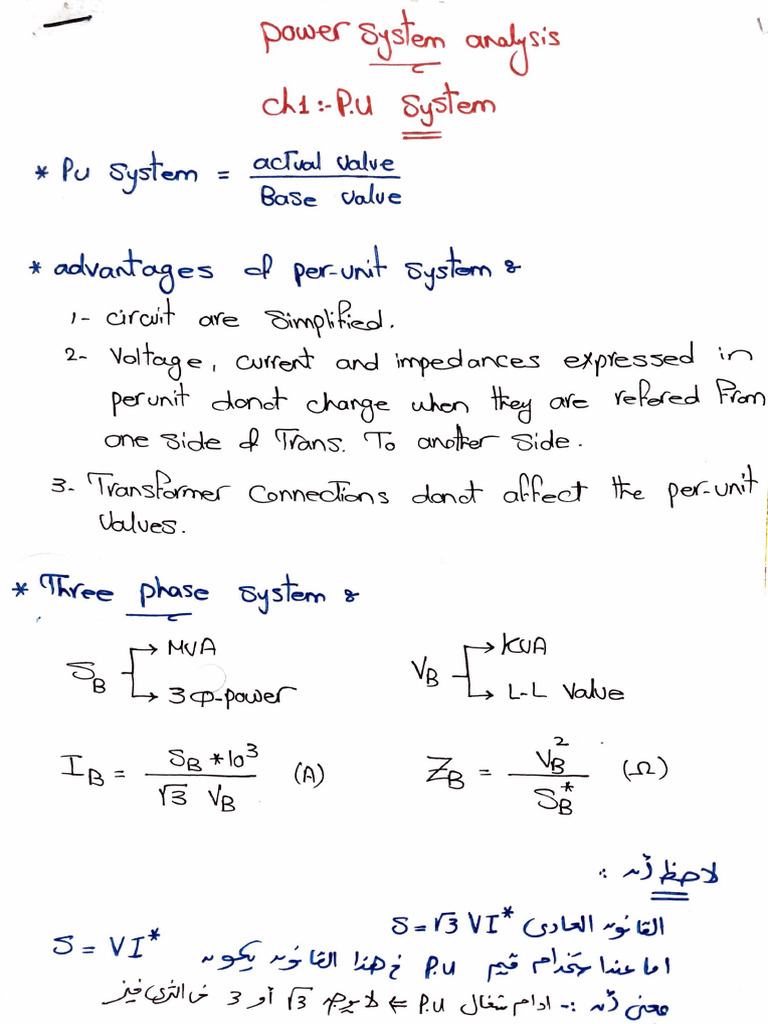 Power System analysis
ch1:- P.U System
* Pu System = actual value / Base value
* advantages of per-unit system :
1- circuit are simplified.
2- Voltage, current and impedances expressed in
per unit donot change when they are refered From
one side of Trans. To another side.
3- Transformer connections donot affect the per-unit
values.
* Three phase system :
S_B → MVA
→ 3φ-power
V_B → KVA
→ L-L value
I_B = S_B * 10^3 / √3 V_B (A)
Z_B = V_B^2 / S_B^* (Ω)
لاحظ أن :
القانون العادى S = √3 VI*
اما عند استخدام قيم P.U فـ هذا القانون يكون S = VI*
معنى أن :- ادام شغال P.U ⇐ لا يوجد √3 أو 3 فى الثرى فيز